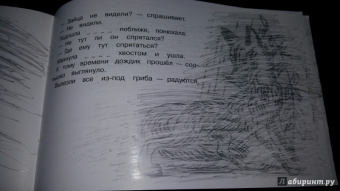 — Зайца не видели? — спрашивает.
— Не видели.
Подошла _ _ _ _ поближе, понюхала:
— Не тут ли он спрятался?
— Где ему тут спрятаться?
Махнула _ _ _ _ хвостом и ушла.
К тому времени дождик прошёл — сол-
нышко выглянуло.
Вылезли все из-под гриба — радуются.
Лабиринт.ру